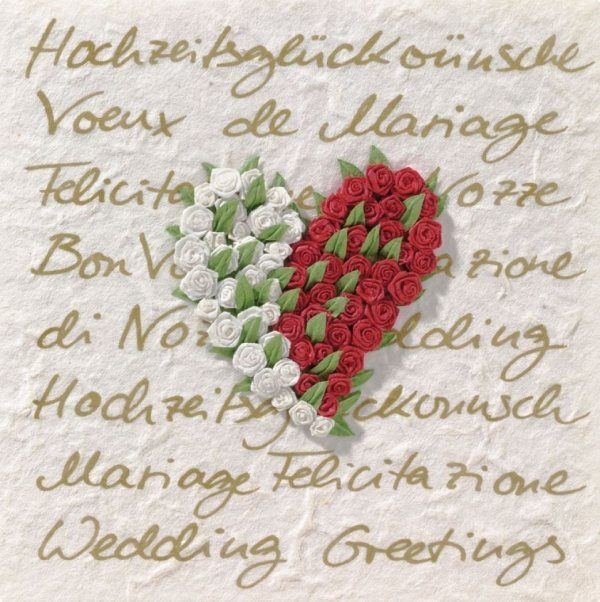 Hochzeitsglückwünsche
Voeux de Mariage
Felicita e Nozze
Bon Vo azione
di Noz dding
Hochzeitsg ückwunsch
Mariage Felicitazione
Wedding Greetings